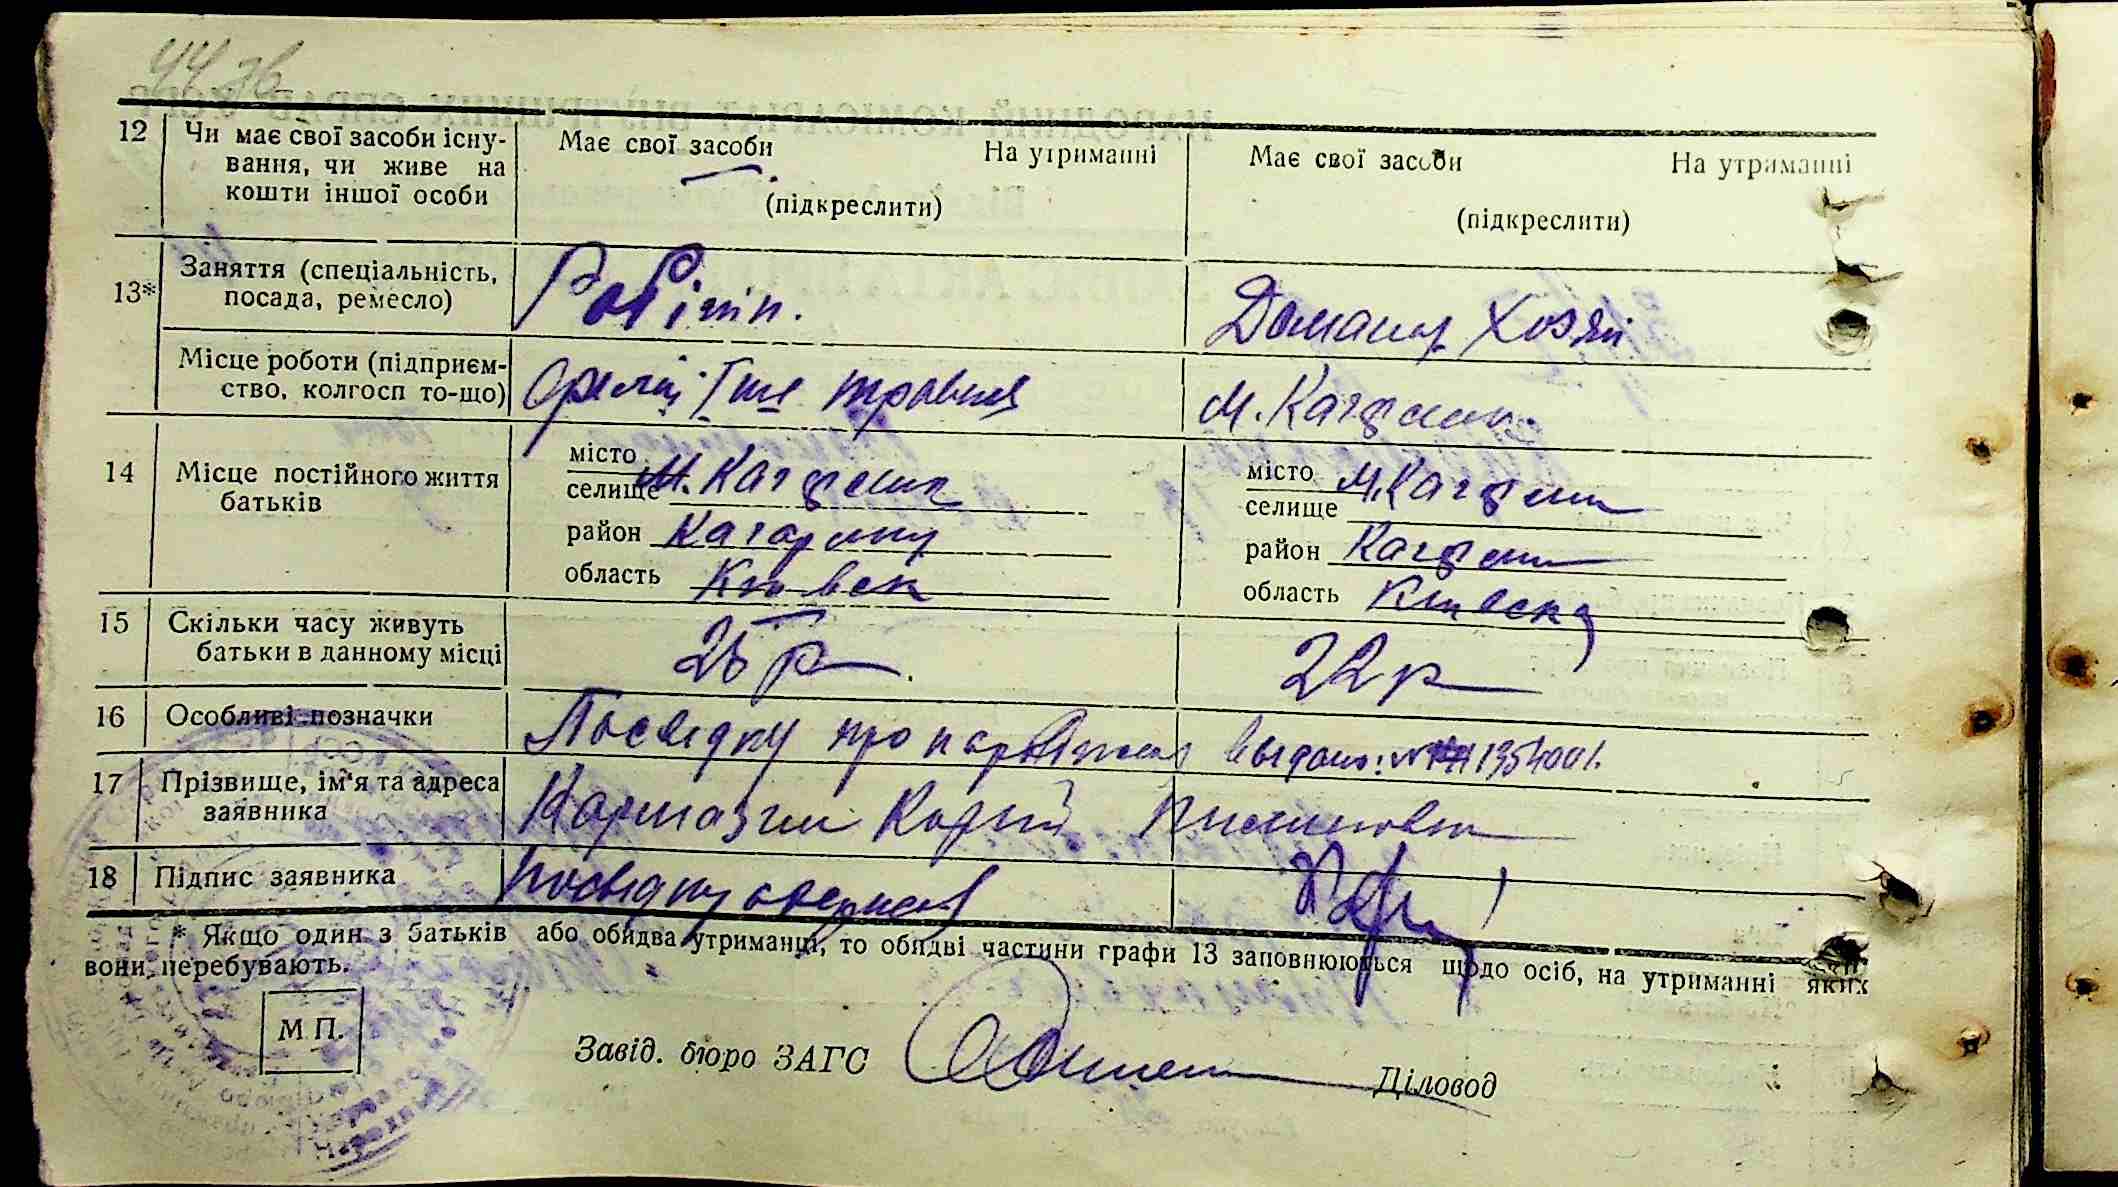 12 Чи має свої засоби існу- Має свої засоби На утриманні Має свої засоби На утриманні
вання, чи живе на
кошти іншої особи (підкреслити) (підкреслити)
13* Заняття (спеціальність,
посада, ремесло) Робітн. Домашн Хозяй
Місце роботи (підприєм-
ство, колгосп то-що) травня м. Кагарлик
14 Місце постійного життя
батьків
місто м. Кагарлик місто м. Кагарлик
селище селище
район Кагарлик район Кагарлик
область Київск область Київска
15 Скільки часу живуть
батьки в данному місці 25 р 22 р
16 Особливі позначки Посвідку про народження видано: № 1354001.
17 Прізвище, ім'я та адреса
заявника Кармазин
18 Підпис заявника Посвідку одержав
* Якщо один з батьків або обидва утриманці, то обидві частини графи 13 заповнюються щодо осіб, на утриманні яких
вони перебувають.
М П.
Завід. бюро ЗАГС Діловод